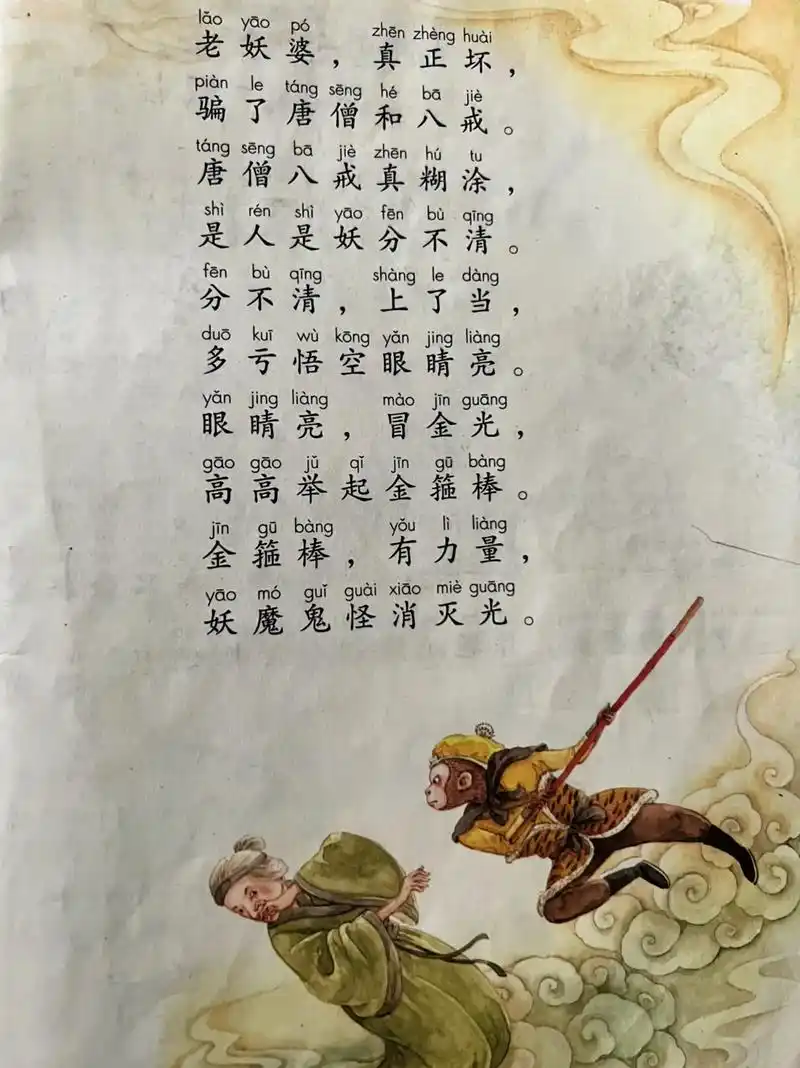 lǎo yāo pó zhēn zhèng huài
老妖婆，真正坏，
piàn le táng sēng hé bā jiè
骗了唐僧和八戒。
táng sēng bā jiè zhēn hú tu
唐僧八戒真糊涂，
shì rén shì yāo fēn bù qīng
是人是妖分不清。
fēn bù qīng shàng le dàng
分不清，上了当，
duō kuī wù kōng yǎn jing liàng
多亏悟空眼睛亮。
yǎn jing liàng mào jīn guāng
眼睛亮，冒金光，
gāo gāo jǔ qǐ jīn gū bàng
高高举起金箍棒。
jīn gū bàng yǒu lì liàng
金箍棒，有力量，
yāo mó guǐ guài xiāo miè guāng
妖魔鬼怪消灭光。